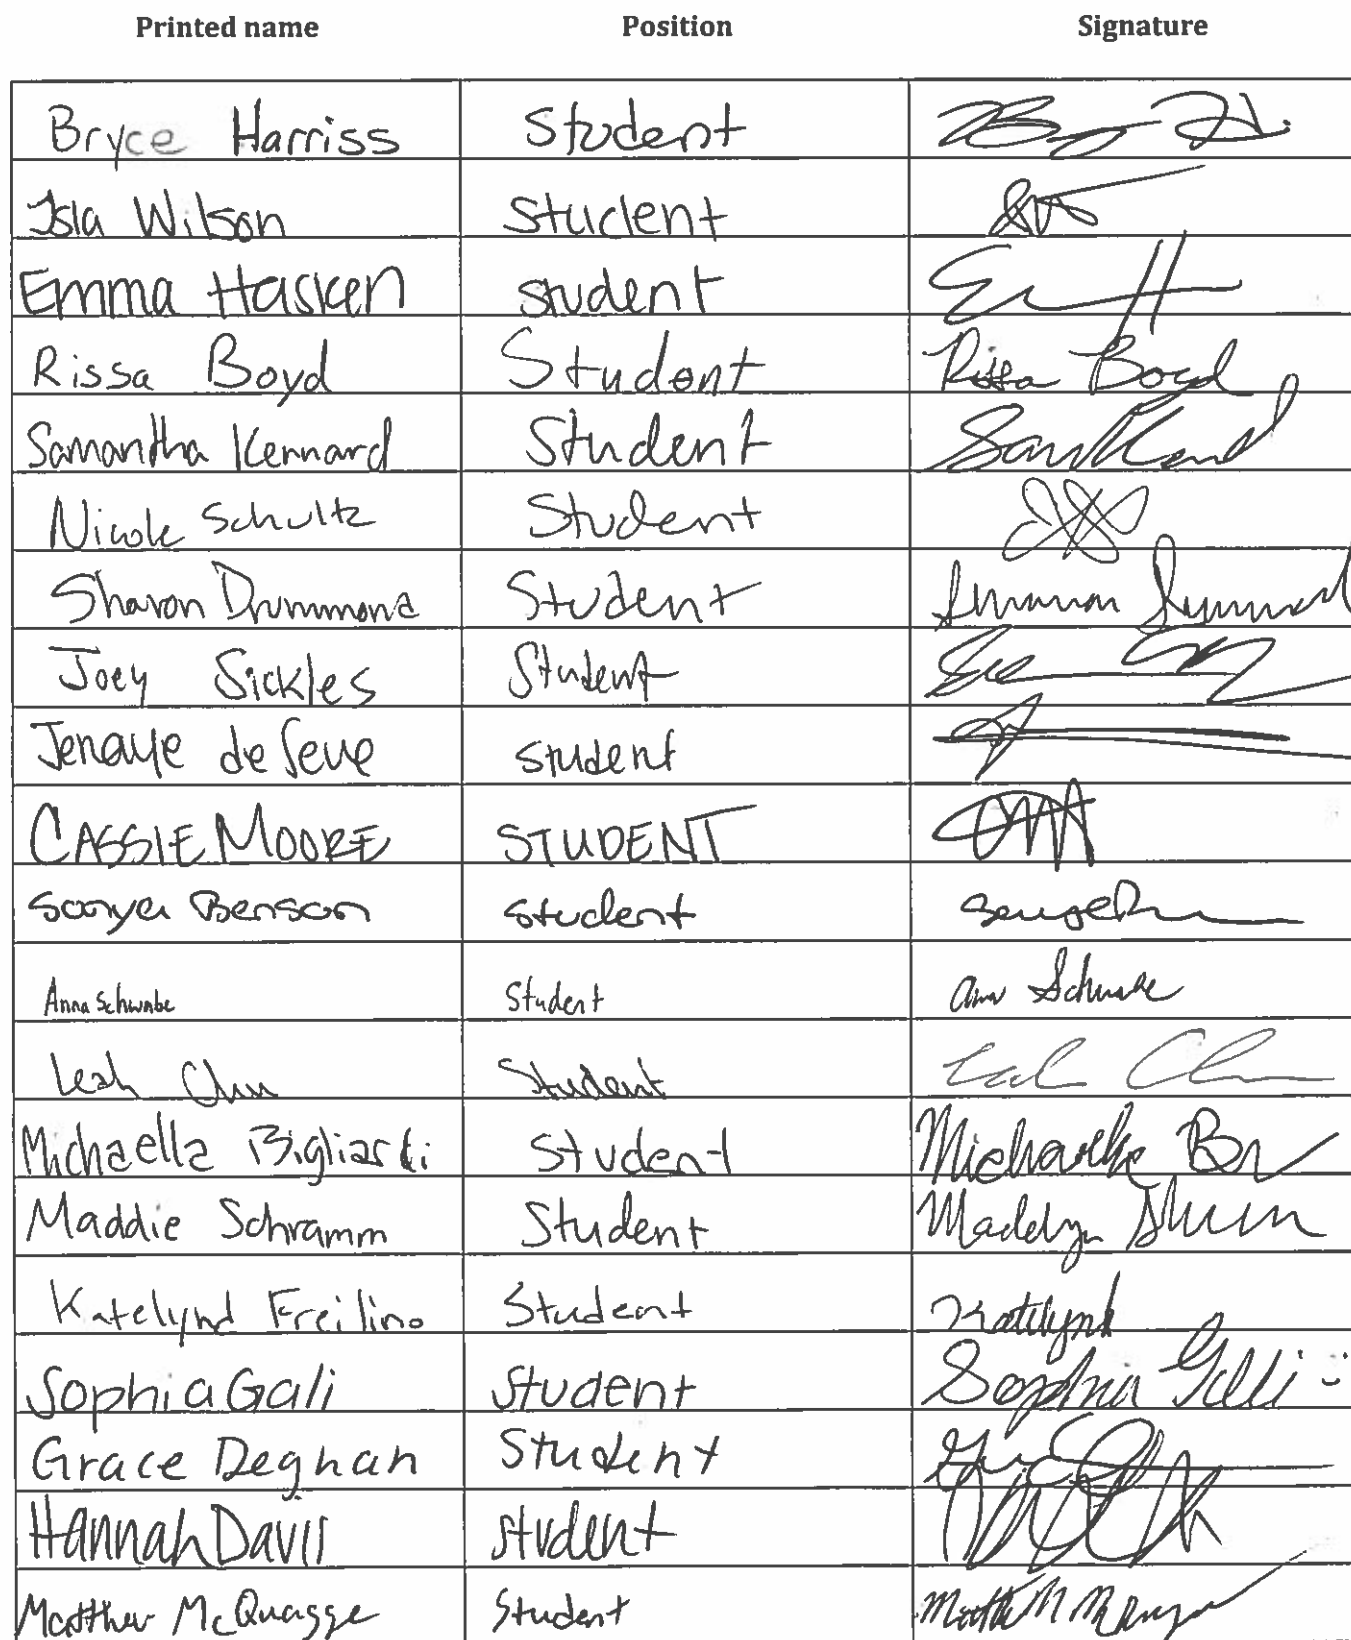 Printed name Position Signature
Bryce Harriss Student
Isla Wilson Student
Emma Hasken student
Rissa Boyd Student Rissa Boyd
Samantha Kennard Student
Nicole Schultz Student
Sharon Drummond Student
Joey Sickles Student
Jenaye de Seve student
CASSIE MOORE STUDENT
Sonya Benson student
Anna Schwabe Student Anna Schwabe
Leah Chu Student Leah
Michaella Bigliardi Student
Maddie Schramm Student Madelyn
Katelynd Freilino Student Katelynd
Sophia Gali Student Sophia Gali
Grace Deghan Student
Hannah Davis Student
Matthew McQuagge Student